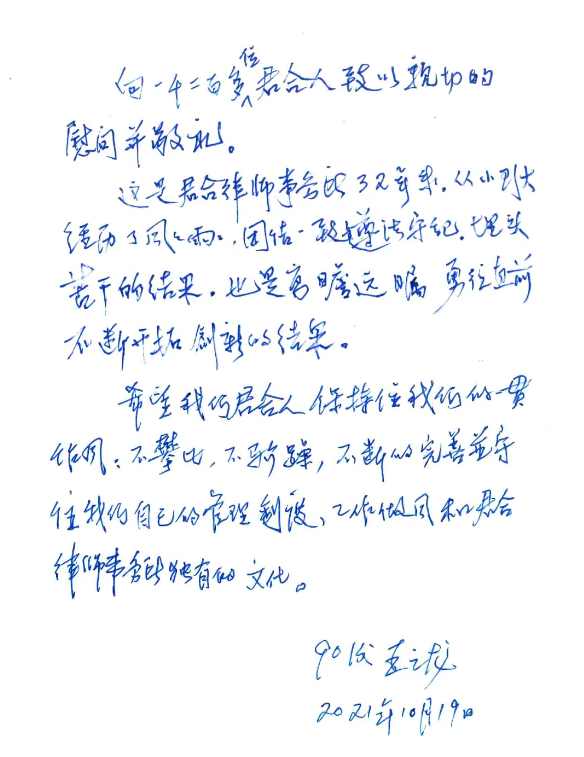 向一千二百多位君合人致以亲切的
慰问并敬礼。
这是君合律师事务所32年来，从小到大
经历了风风雨雨，团结一致遵法守纪，埋头
苦干的结果，也是高瞻远瞩 勇往直前
不断开拓创新的结果。
希望我们君合人保持住我们的一贯
作风：不攀比，不骄躁，不断的完善并守
住我们自己的管理制度、工作做风和君合
律师事务所独有的文化。
90代 王之龙
2021年10月19日